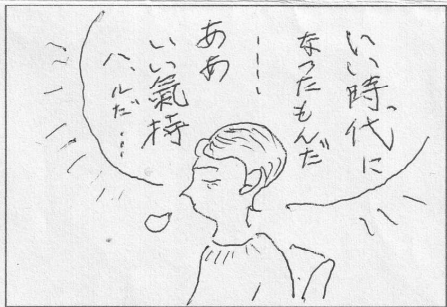 いい時代に
なったもんだ
……
ああ
いい氣持
ハルだ…